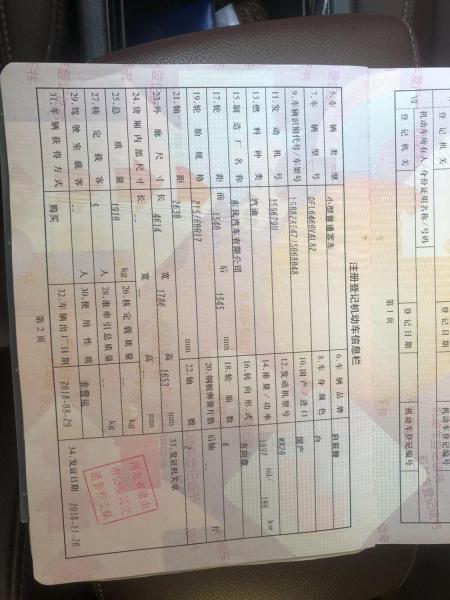 注册登记机动车信息栏
5.车辆类型 小型普通客车 6.车辆品牌 启辰牌
7.车辆型号 8.车身颜色 白
9.车辆识别代号/车架号 10.国产/进口 国产
11.发动机号 12.发动机型号 MR20
13.燃料种类 汽油 14.排量/功率 1997 ml/ 106 kw
15.制造厂名称 东风汽车有限公司 16.转向形式 方向盘
17.轮距 前 1540 后 1545 mm 18.轮胎数 4
19.轮胎规格 215/60R17 20.钢板弹簧片数 后轴 -- 片
21.轴距 2630 mm 22.轴数 2
23.外廓尺寸 长 4614 宽 1786 高 1653 mm 33.发证机关章
24.货厢内部尺寸 长 -- 宽 -- 高 -- mm
25.总质量 1910 kg 26.核定载质量 -- kg
27.核定载客 5 人 28.准牵引总质量 -- kg
29.驾驶室载客 -- 人 30.使用性质 非营运
31.车辆获得方式 购买 32.车辆出厂日期 2018-08-29 34.发证日期 2018-11-26
第2页
机动车所有人/身份证明名称/号码
登记机关 登记日期 机动车登记编号
登记机关 登记日期 机动车登记编号
第1页